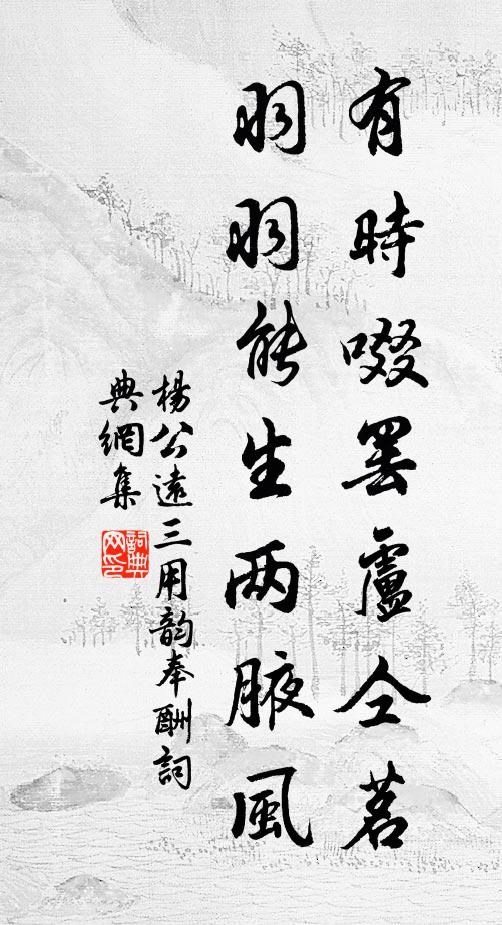 有時啜罷盧仝茗
羽羽能生两腋風
楊公遠三用韵奉酬詞
典網集
詞典网印